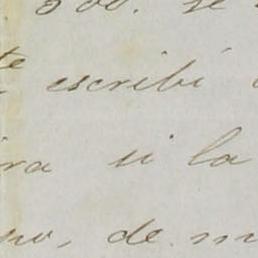 300. se
te escribí
ra si la
no, de m